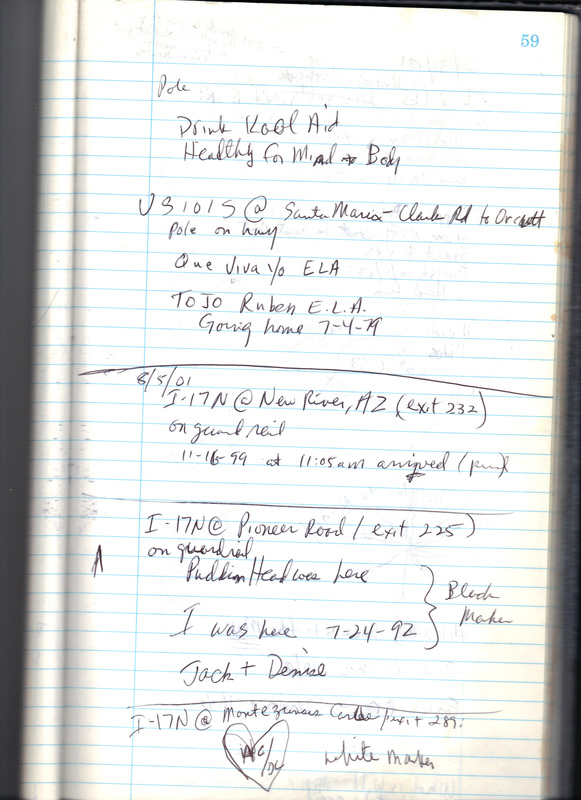 59
Pole
Drink Kool Aid
Healthy for Mind + Body
US 101 S @ Santa Maria - Clark Rd to Orcutt
Pole on hwy
Que Viva y/o ELA
TOJO Ruben E.L.A.
Going home 7-4-79
8/5/01
I-17N @ New River, AZ (exit 232)
on guard rail
11-16-99 at 11:05am arrived
I-17N @ Pioneer Road / exit 225)
on guardrail
Puddin Head was here
Black
Maker
I was here 7-24-92
Jack + Denise
I-17N @ Montezumas Castle / exit 289.
white maker